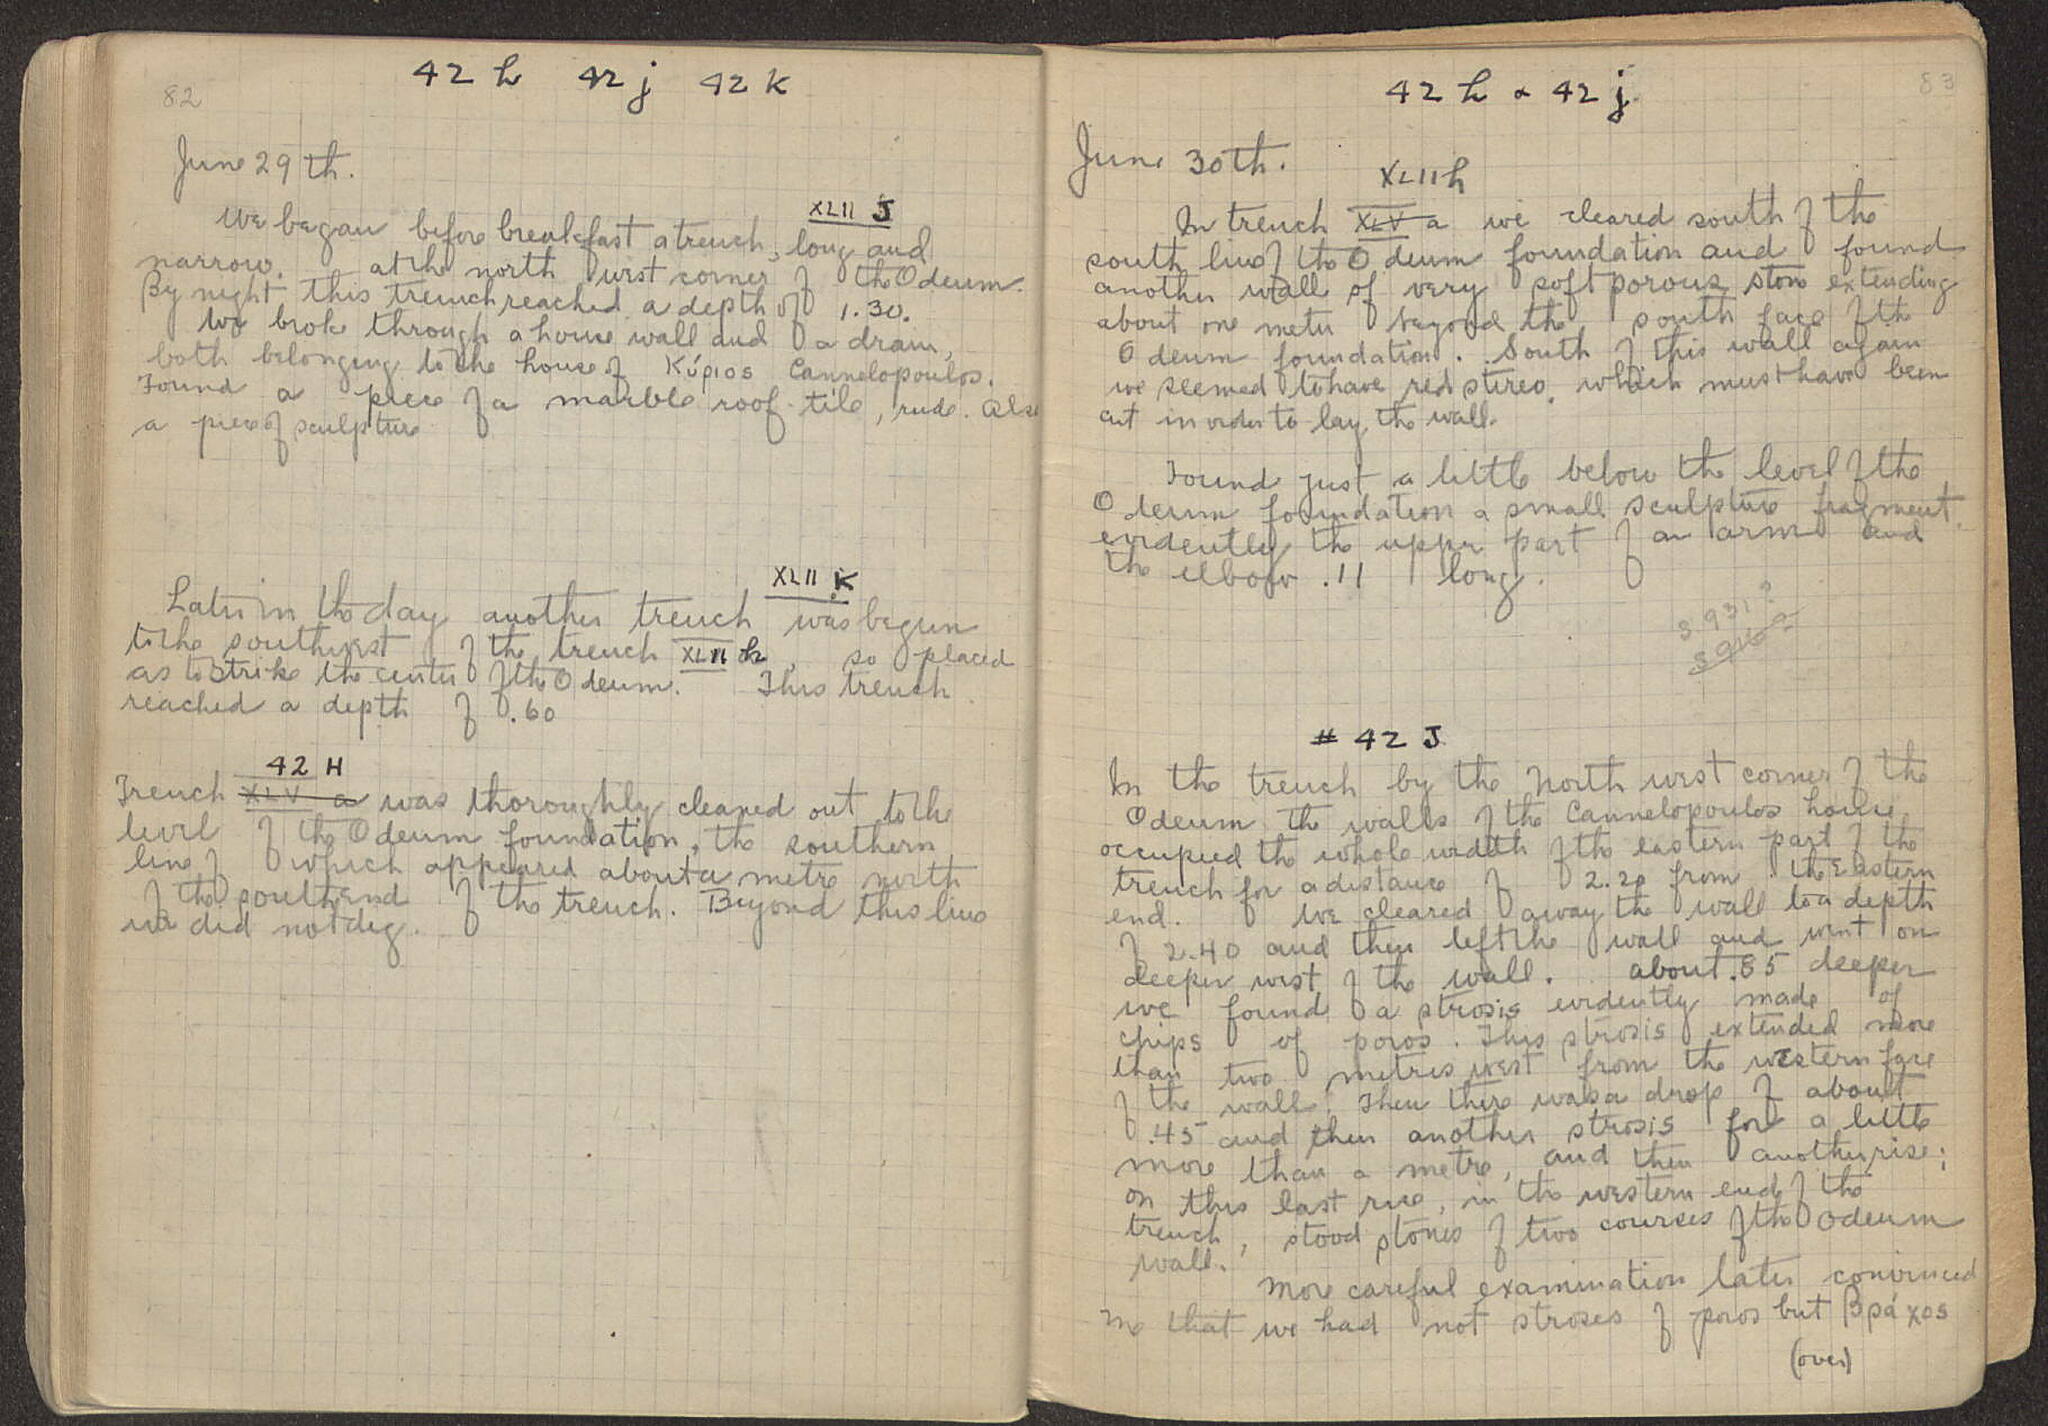 82
42 h 42 j 42 K
June 29th.
XLII J
We began before breakfast a trench, long and
narrow, at the north west corner of the Odeum.
By night this trench reached a depth of 1.30.
We broke through a house wall and a drain,
both belonging to the house of Κύριος Cannelopoulos.
Found a piece of a marble roof-tile, rude. Also
a piece of sculpture
XLII K
Later in the day another trench was begun
to the southwest of the trench XLII h, so placed
as to strike the center of the Odeum. This trench
reached a depth of .60
42 H
Trench XLV a was thoroughly cleared out to the
level of the Odeum foundation, the southern
line of which appeared about a metre north
of the south end of the trench. Beyond this line
we did not dig.
83
42 h & 42 j
June 30th.
XLII h
In trench XLV a we cleared south of the
south line of the Odeum foundation and found
another wall of very soft porous stone extending
about one meter beyond the south face of the
Odeum foundation. South of this wall again
we seemed to have red stereo, which must have been
cut in order to lay the wall.
Found just a little below the level of the
Odeum foundation a small sculpture fragment,
evidently the upper part of an arm and
the elbow .11 long.
S 931?
S 916
# 42 J
In the trench by the North west corner of the
Odeum the walls of the Cannelopoulos house
occupied the whole width of the eastern part of the
trench for a distance of 2.20 from the Eastern
end. We cleared away the wall to a depth
of 2.40 and then left the wall and went on
deeper west of the wall. about .85 deeper
we found a strosis evidently made of
chips of poros. This strosis extended more
than two metres west from the western face
of the wall. Then there was a drop of about
.45 and then another strosis for a little
more than a metre, and then another rise;
on this last rise, in the western end of the
trench, stood stones of two courses of the Odeum
wall.
More careful examination later convinced
me that we had not stroses of poros but βράχος
(over)